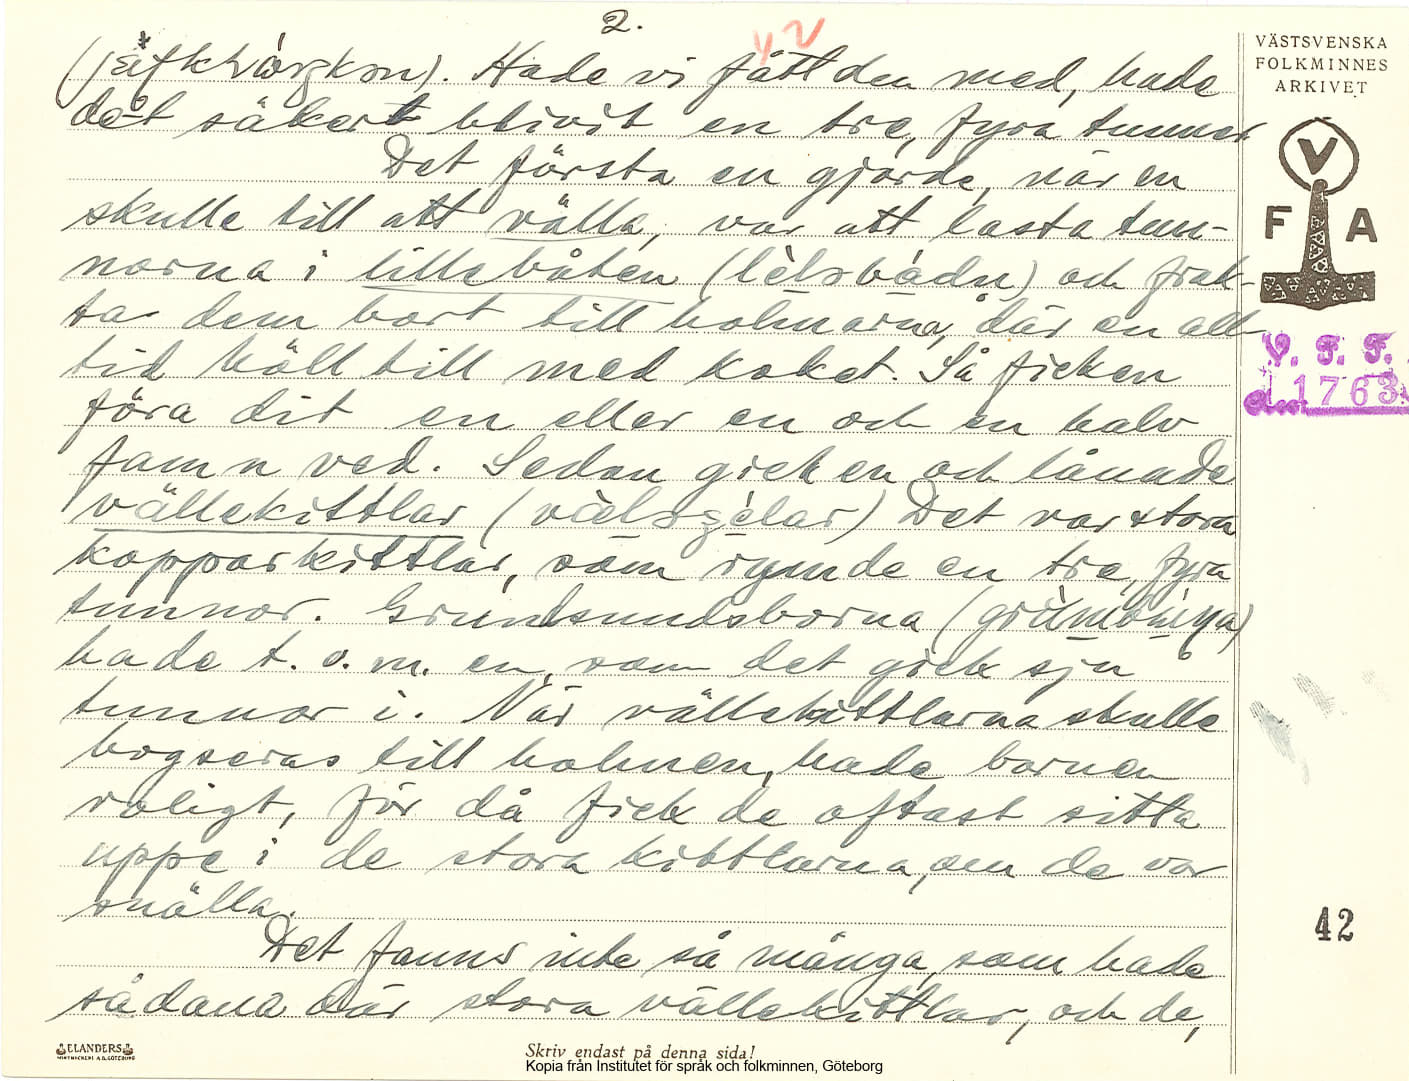 2.
42
Hade vi fått den med, hade
det säkert blivit en tre, fyra tunnor
Det första en gjorde, när en
skulle till att välla, var att lasta tun-
norna i lillebåten och frak-
ta dem bort till holmarna, där en all-
tid höll till med koket. Så fick en
föra dit en eller en och en halv
famn ved. Sedan gick en och lånade
vällekittlar Det var stora
kopparkittlar, som rymde en tre, fyra
tunnor. Grundsundsborna
hade t.o.m. en, som det gick sju
tunnor i. När vällekittlarna skulle
bogseras till holmen, hade barnen
roligt, för då fick de oftast sitta
uppe i de stora kittlarna, om de var
snälla.
Det fanns inte så många, som hade
sådana där stora vällekittlar, och de,
VÄSTSVENSKA
FOLKMINNES
ARKIVET
V
F A
V. F. F.
1763
42
ELANDERS
Skriv endast på denna sida!
Kopia från Institutet för språk och folkminnen, Göteborg